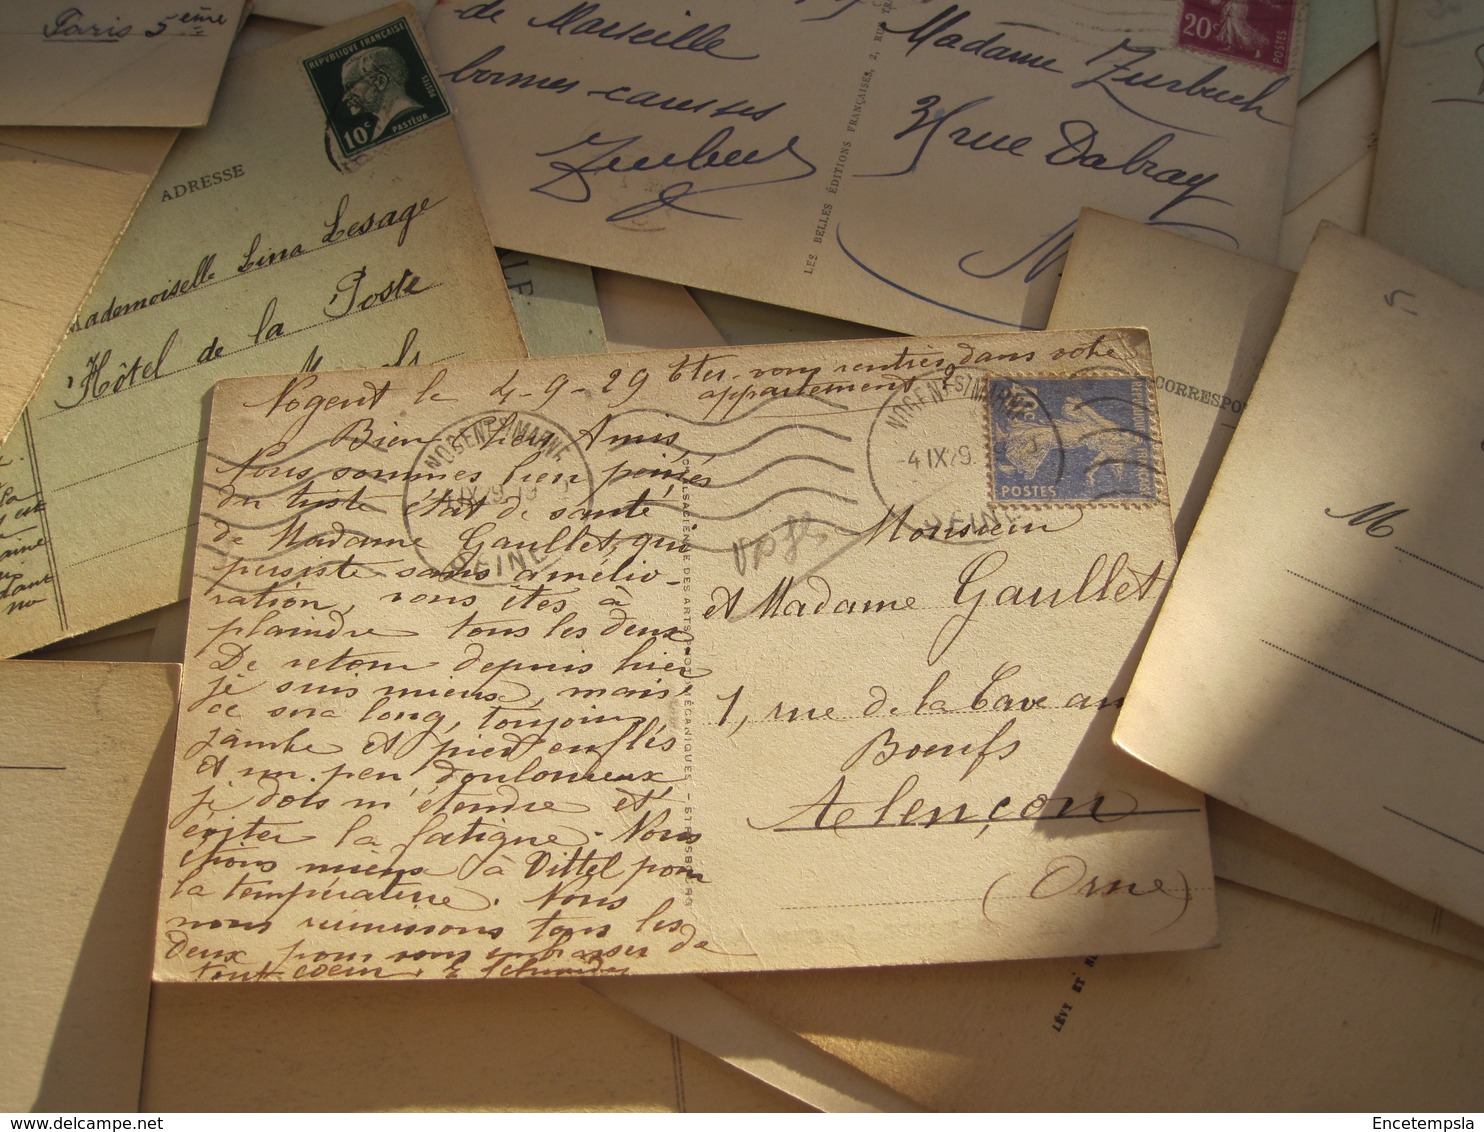 Paris 5ème
RÉPUBLIQUE FRANÇAISE
10c
PASTEUR
ADRESSE
Mademoiselle Lina Lesage
Hôtel de la Poste
de Marseille
bonnes caresses
LES BELLES ÉDITIONS FRANÇAISES, 2, RUE
20c
POSTES
Madame Zurbuch
31 rue Dabray
Nogent le 4-9-29 Etes-vous rentrés dans votre
appartement?
Bien chers Amis,
Nous sommes bien peinés
du triste état de santé
de Madame Gaullet, qui
persiste sans amélio-
ration, vous êtes à
plaindre tous les deux.
De retour depuis hier
je suis mieux, mais
ce sera long, toujours
jambe et pied enflés
et un peu douloureux
je dois m'étendre et
éviter la fatigue. Nous
étions mieux à Vittel pour
la température. Nous
nous réunissons tous les
deux pour vous embrasser de
tout cœur.
NOGENT S/ MARNE
4 IX 29
SEINE
NOGENT S/ MARNE
-4 IX 29
SEINE
POSTES
Monsieur
et Madame Gaullet
1, rue de la Cave aux
Bœufs
Alençon
(Orne)
ALSACIENNE DES ARTS PHOTOMÉCANIQUES - STRASBOURG
CORRESPO
M
LÉVY ET
Delcampe.net
Encetempsla